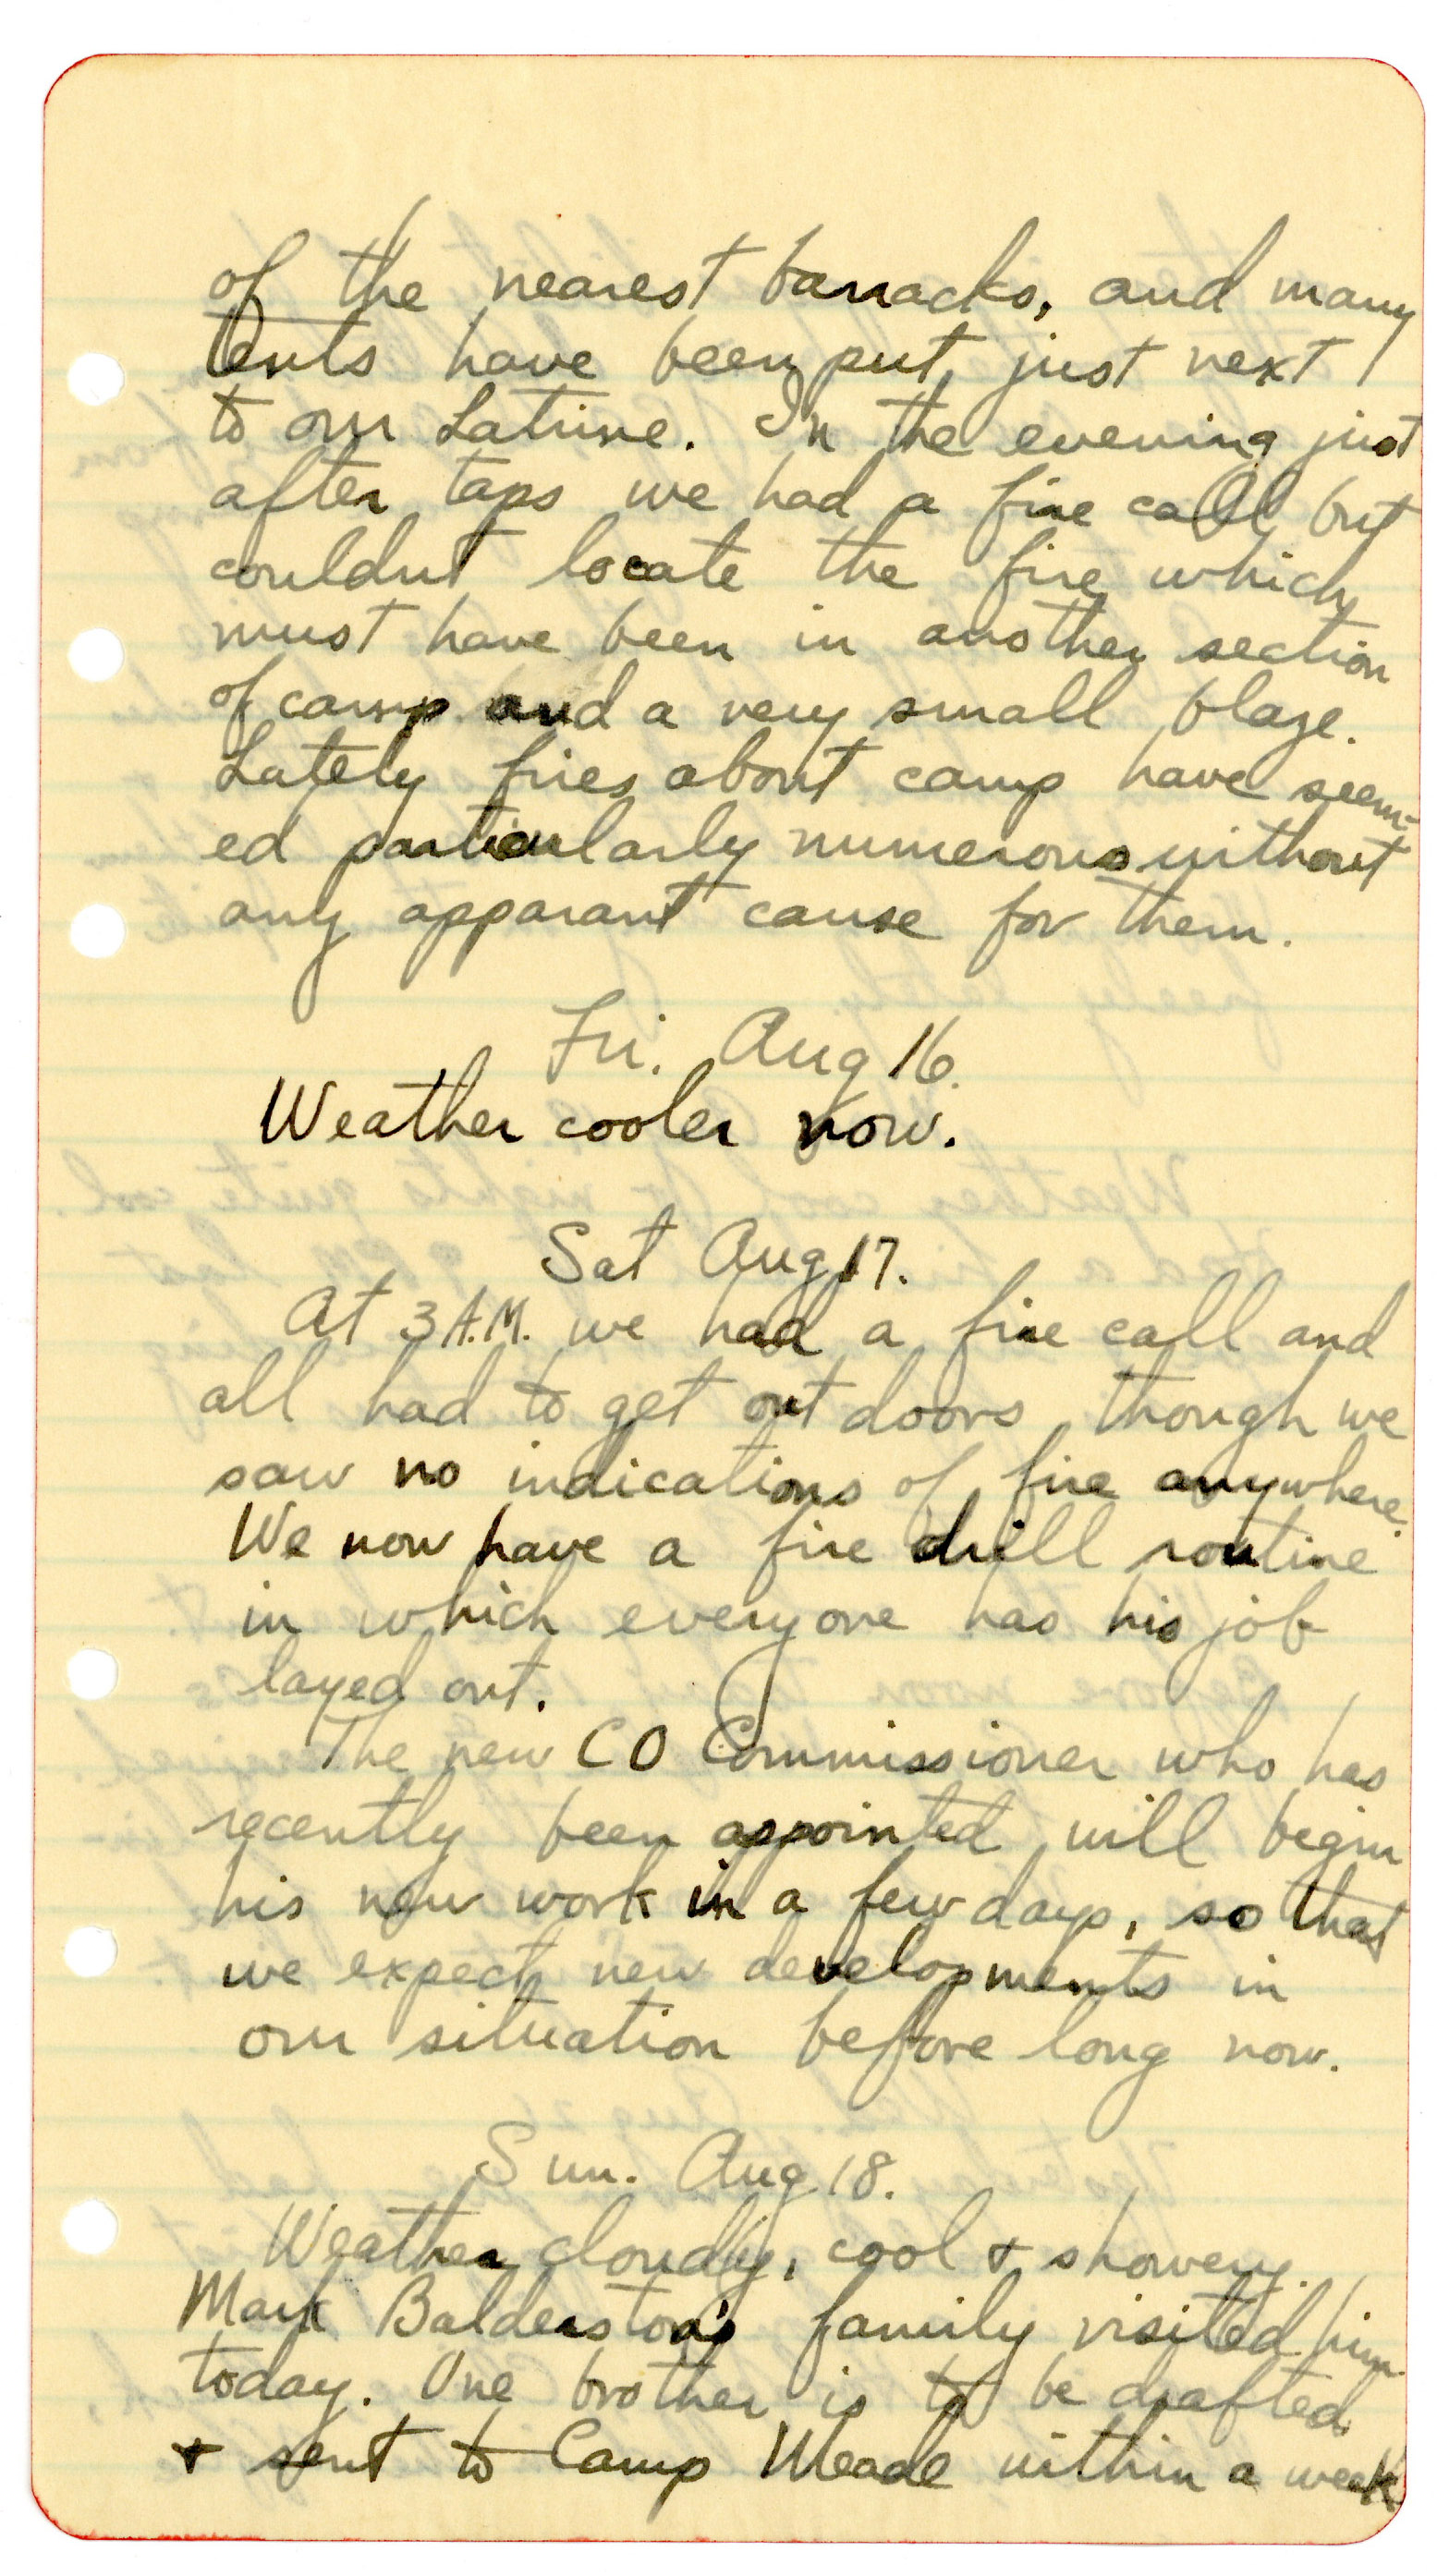 of the nearest barracks, and many
tents have been put just next
to our Latrine. In the evening just
after taps we had a fire call but
couldnt locate the fire which
must have been in another section
of camp and a very small blaze.
Lately fires about camp have seem-
ed particularly numerous without
any apparant cause for them.
Fri. Aug 16.
Weather cooler now.
Sat Aug 17.
At 3 A.M. we had a fire call and
all had to get out doors though we
saw no indications of fire anywhere.
We now have a fire drill routine
in which everyone has his job
layed out.
The new CO Commissioner who has
recently been appointed will begin
his new work in a few days, so that
we expect new developments in
our situation before long now.
Sun. Aug 18.
Weather cloudy, cool & showery.
Mark Balderston's family visited him
today. One brother is to be drafted
& sent to Camp Meade within a week